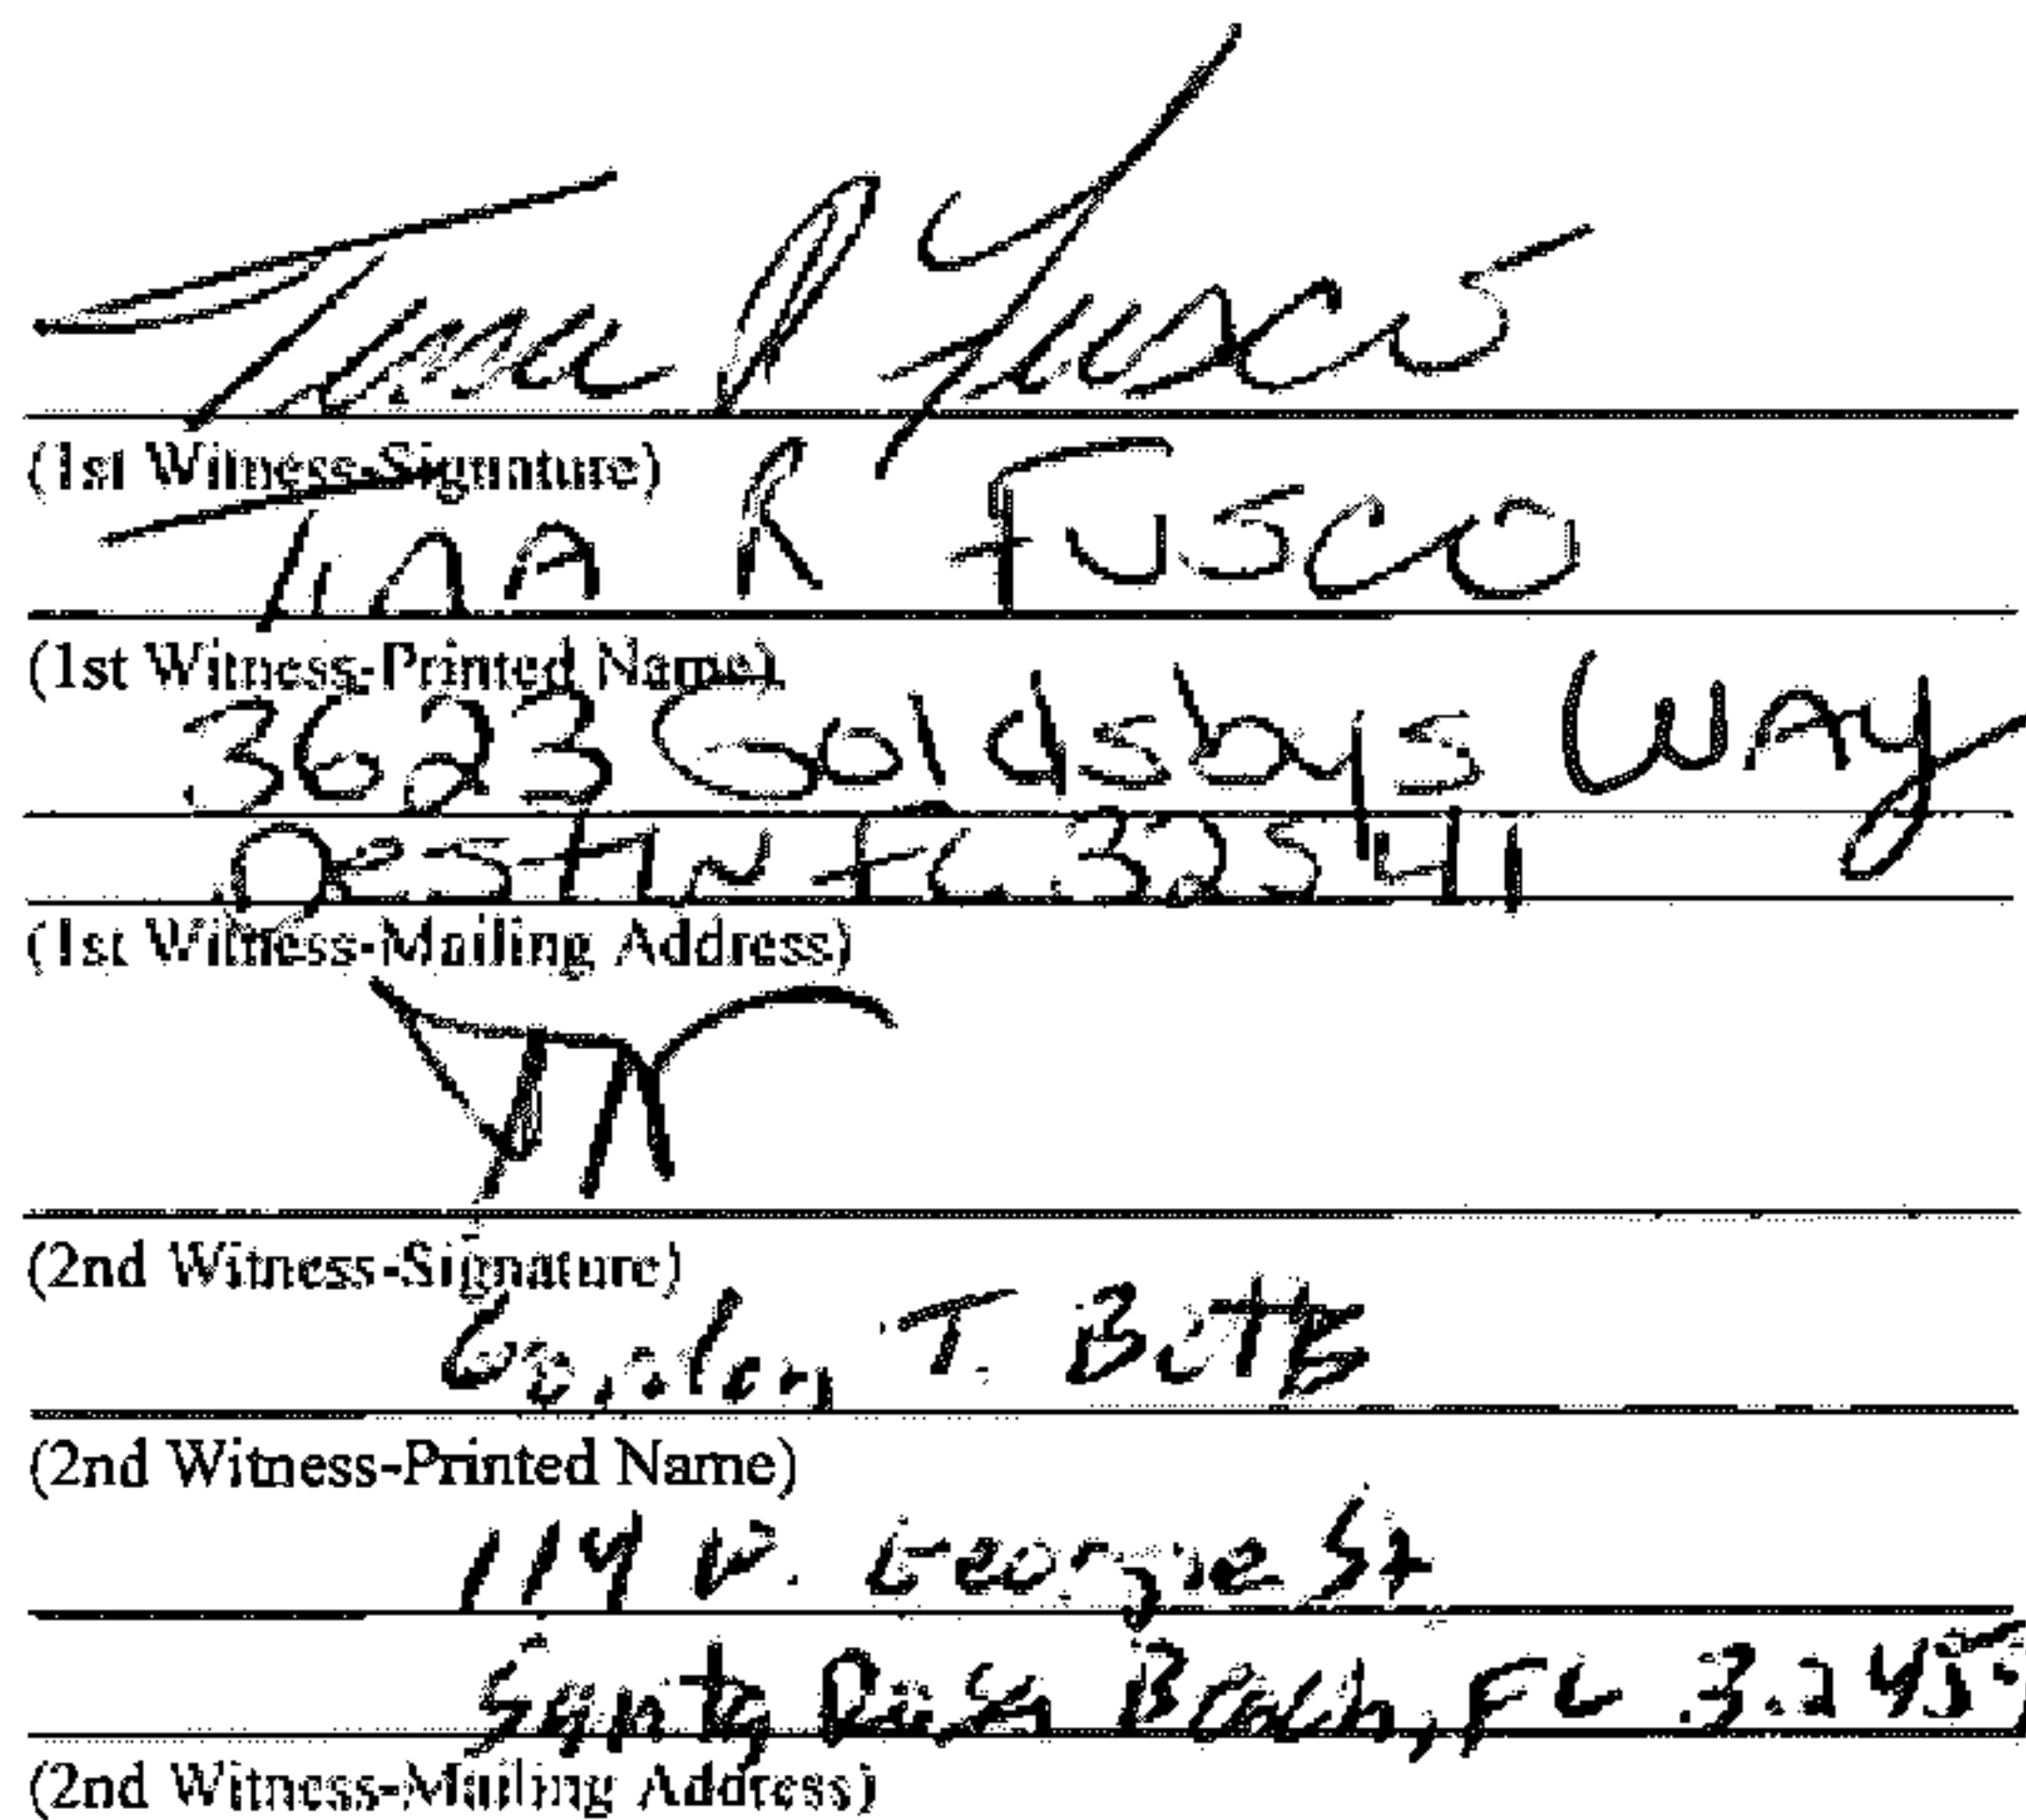 Tina R Fusco
(1st Witness-Signature)
Tina R Fusco
(1st Witness-Printed Name)
3623 Goldsbys Way
Destin FL 32541
(1st Witness-Mailing Address)
(2nd Witness-Signature)
T. Butts
(2nd Witness-Printed Name)
114 W. George St
Santa Rosa Beach, FL 3245
(2nd Witness-Mailing Address)